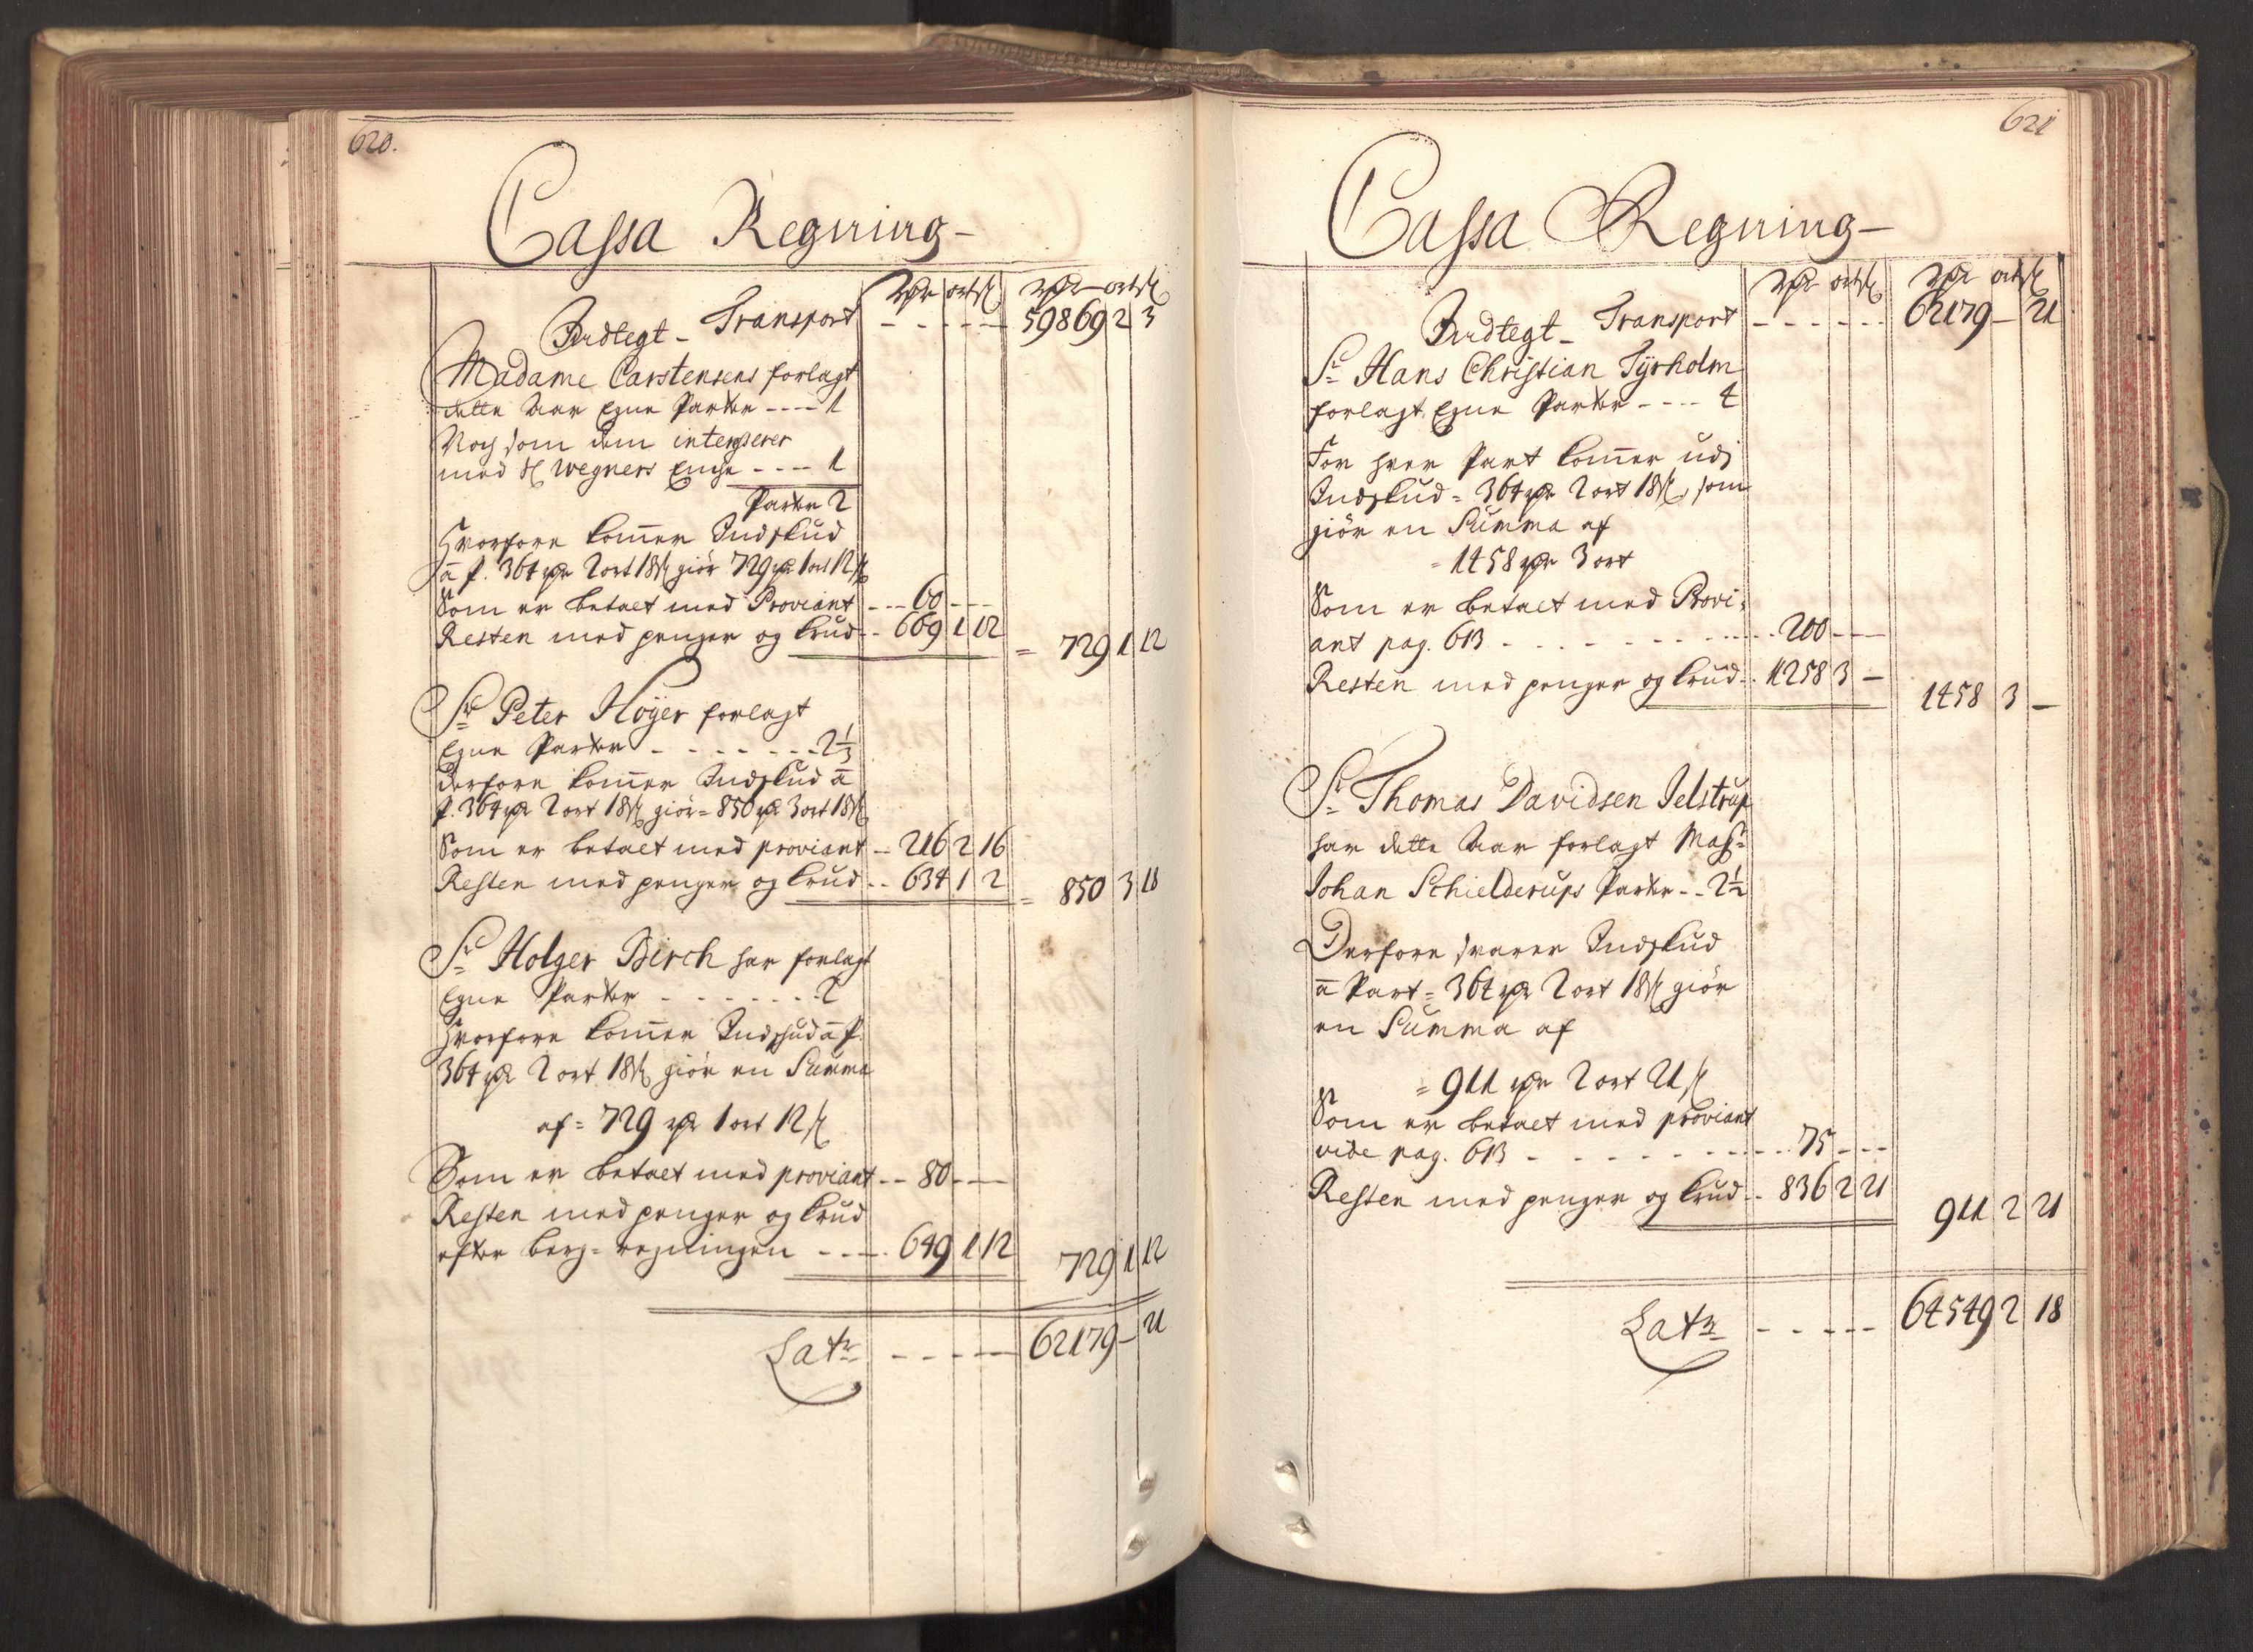 620.
Cassa Regning-
rdr ort ß rdr ort ß
Indtegt - Transport - - - - - 59869 2 3
Madame Carstensens forlagt
dette Aar Egne Parter ---- 1
Noch som dem interesserer
med Hr Wegners Enche ---- 1
Parter 2
Hvorfore kommer Indskud
a P. 364 rdr 2 ort 18 ß giör 729 rdr 1 ort 12 ß
Som er betalt med Proviant --- 60 ---
Resten med penger og krud -- 669 1 12 = 729 1 12
Sr Peter Höyer forlagt
Egne Parter - - - - - - - 2 1/3
derfore kommer Indskud a
P. 364 rdr 2 ort 18 ß giör = 850 rdr 3 ort 18 ß
Som er betalt med proviant - 216 2 16
Resten med penger og krud -- 634 1 2 = 850 3 18
Sr Holger Birch har forlagt
Egne Parter - - - - - - - 2
Hvorfore kommer Indskud a P.
364 rdr 2 ort 18 ß giör en Summa
af = 729 rdr 1 ort 12 ß
Som er betalt med proviant -- 80 ---
Resten med penger og krud
efter berg = regningen ---- 649 1 12 729 1 12
Latr - - - - - 62179 - 21
621
Cassa Regning-
rdr ort ß rdr ort ß
Indtegt - Transport - - - - - - 62179 - 21
Sr Hans Christian Tyrholm
forlagt Egne Parter ---- 4
For hver Part kommer udj
Indskud = 364 rdr 2 ort 18 ß, som
giör en Summa af
= 1458 rdr 3 ort
Som er betalt med Provi=
ant pag. 613 - - - - - - - - 200 ---
Resten med penger og krud -- 1258 3 - 1458 3 -
Sr Thomas Davidsen Jelstrup
har dette Aar forlagt Mass:
Johan Schielderups Parter -- 2 1/2
Derfore svarer Indskud
a Part = 364 rdr 2 ort 18 ß giör
en Summa af
= 911 rdr 2 ort 21 ß
Som er betalt med proviant
vide pag. 613 - - - - - - - - 75 ---
Resten med penger og krud -- 836 2 21 911 2 21
Latr - - - - - 64549 2 18